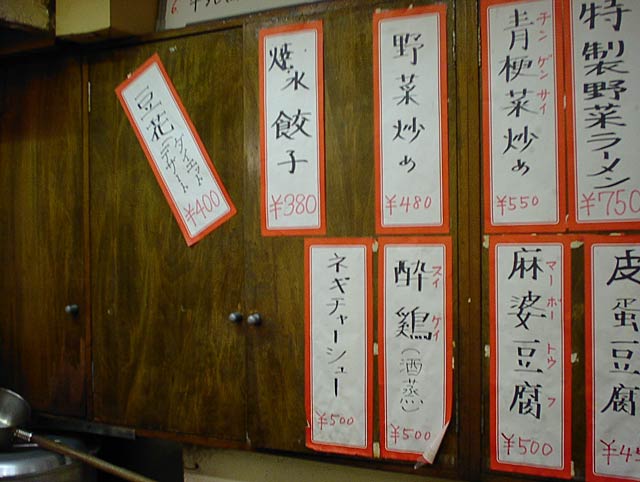 特製野菜ラーメン
¥750
青梗菜炒め
チンゲンサイ
¥550
野菜炒め
¥480
焼水餃子
¥380
豆花
(ダイエットデザート)
¥400
皮蛋豆腐
麻婆豆腐
マーボートウフ
¥500
酔鶏(酒蒸)
スイケイ
¥500
ネギチャーシュー
¥500